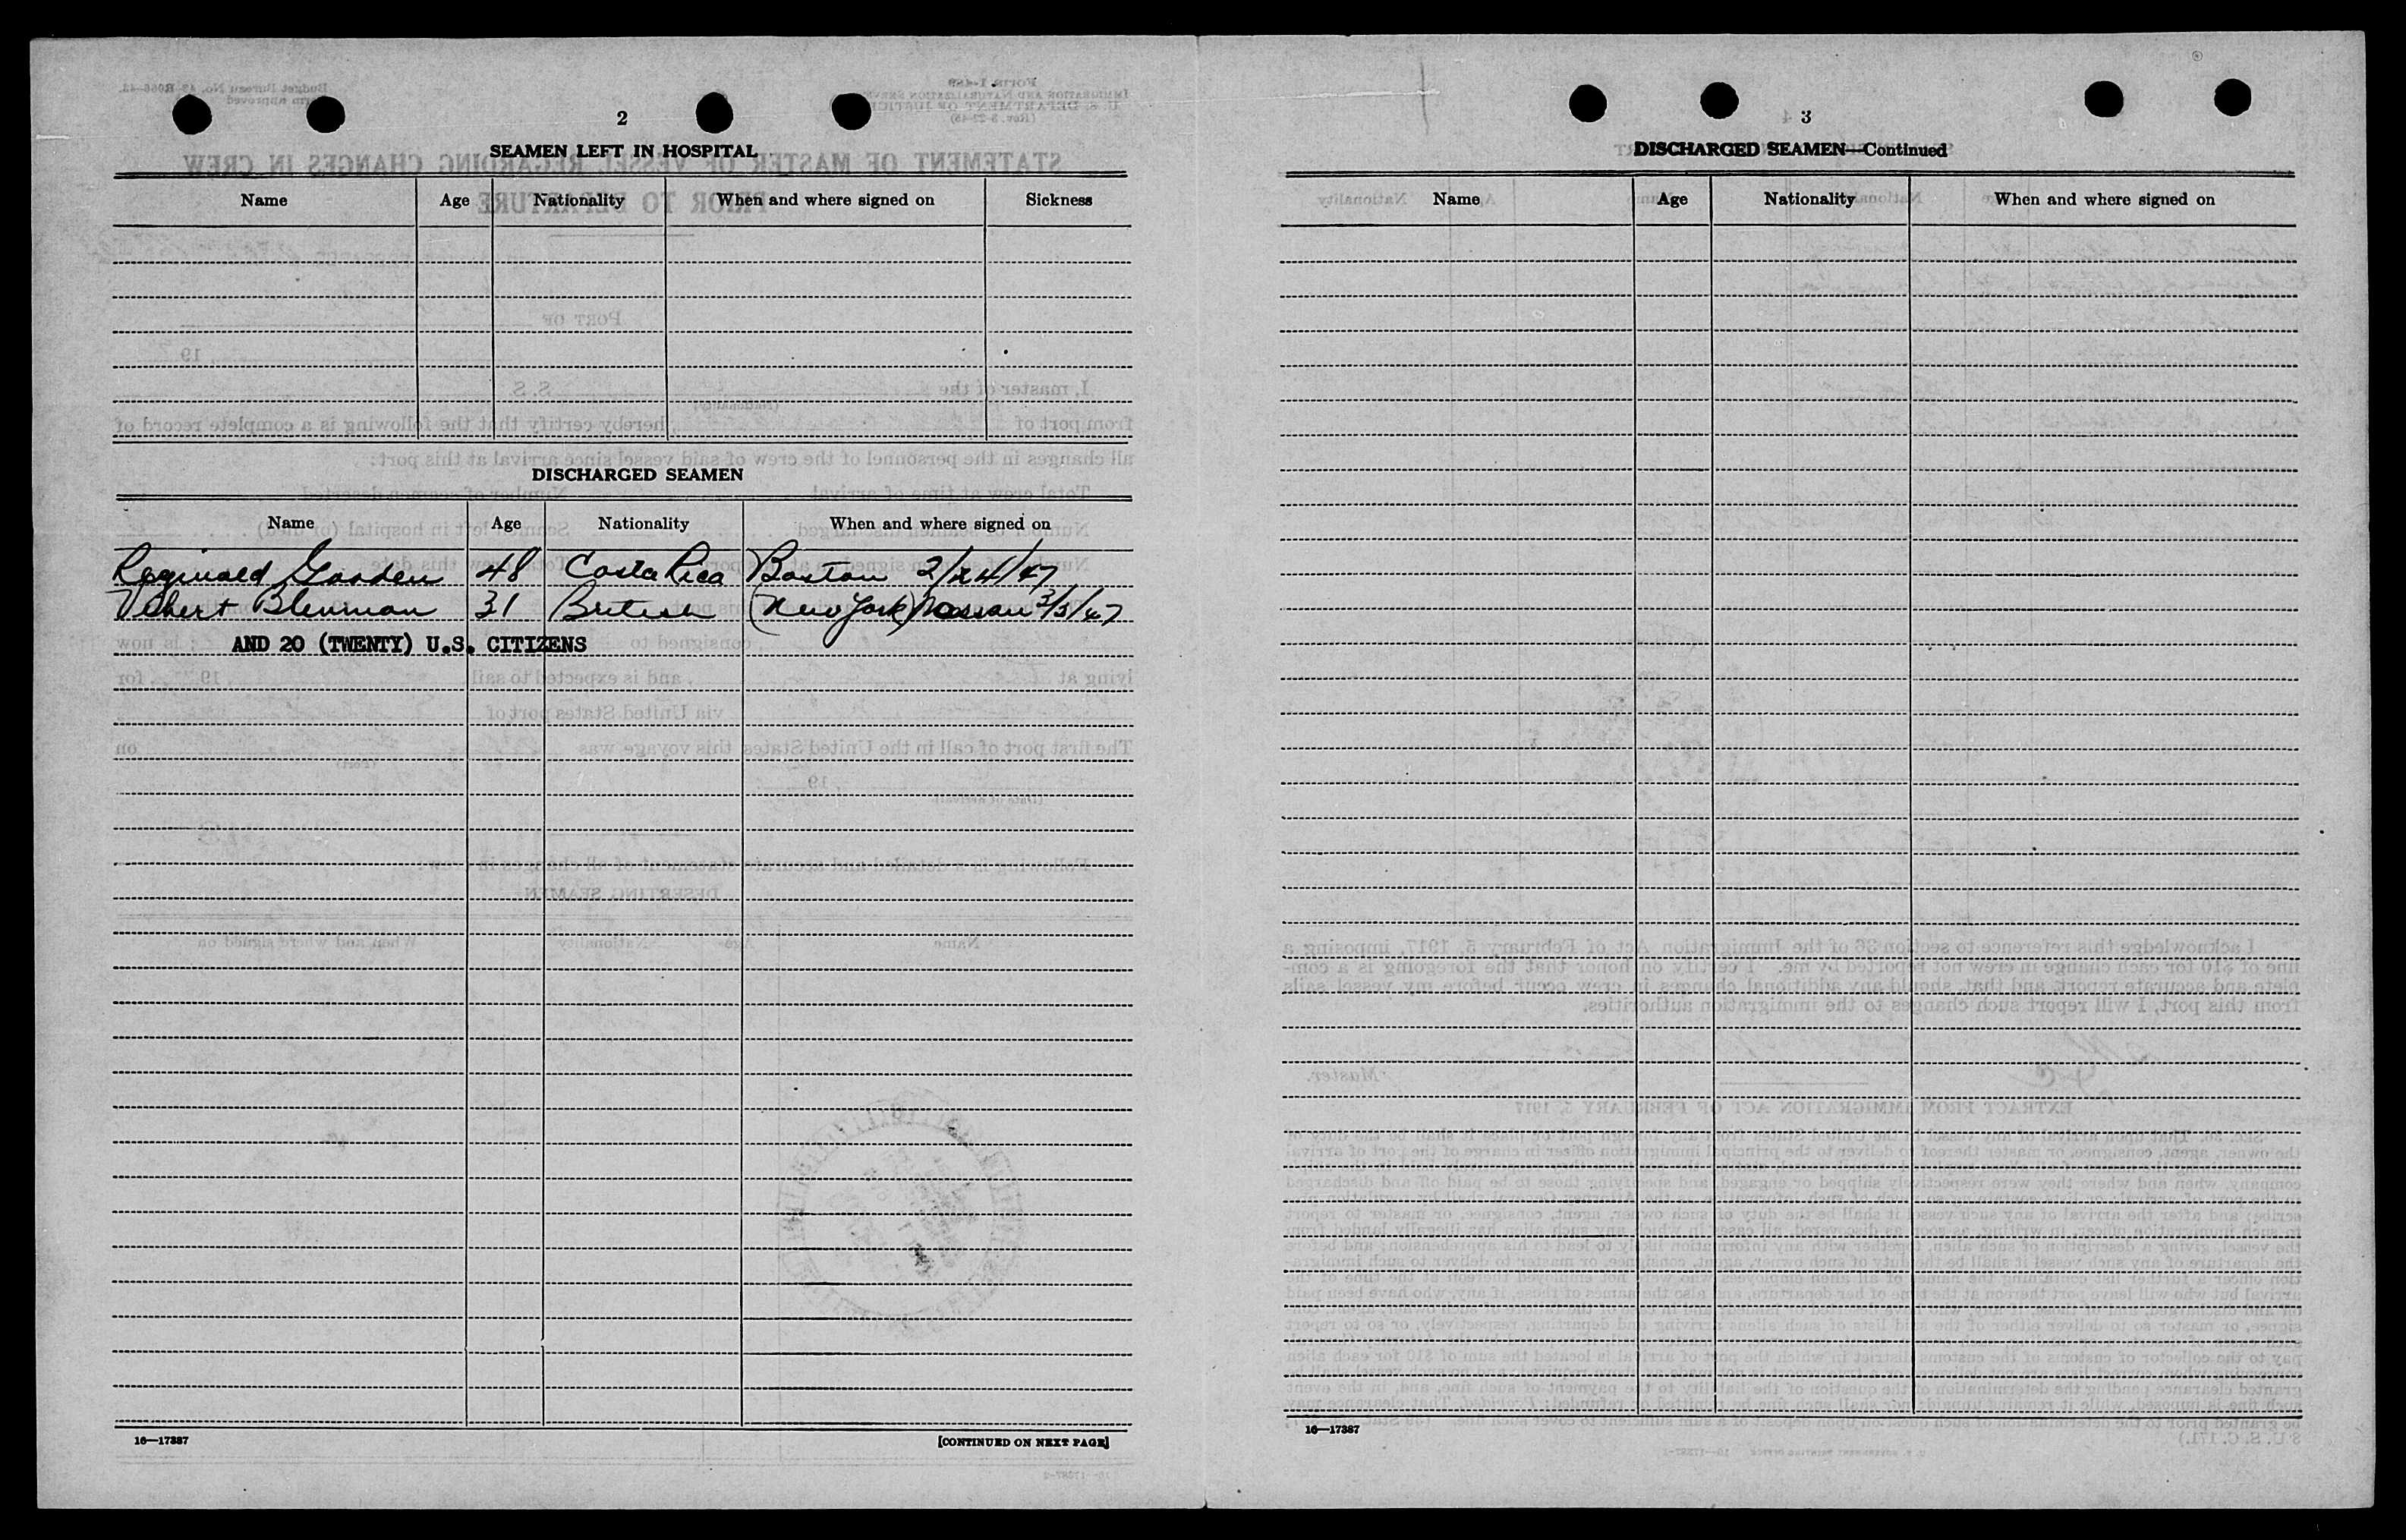 2
SEAMEN LEFT IN HOSPITAL
Name Age Nationality When and where signed on Sickness
DISCHARGED SEAMEN
Name Age Nationality When and where signed on
Reginald Gooden 48 Costa Rica Boston 2/24/47
Blenman 31 British (New York) Nassau 3/3/47
AND 20 (TWENTY) U.S. CITIZENS
16—17387 [CONTINUED ON NEXT PAGE]
3
DISCHARGED SEAMEN—Continued
Name Age Nationality When and where signed on
16—17387